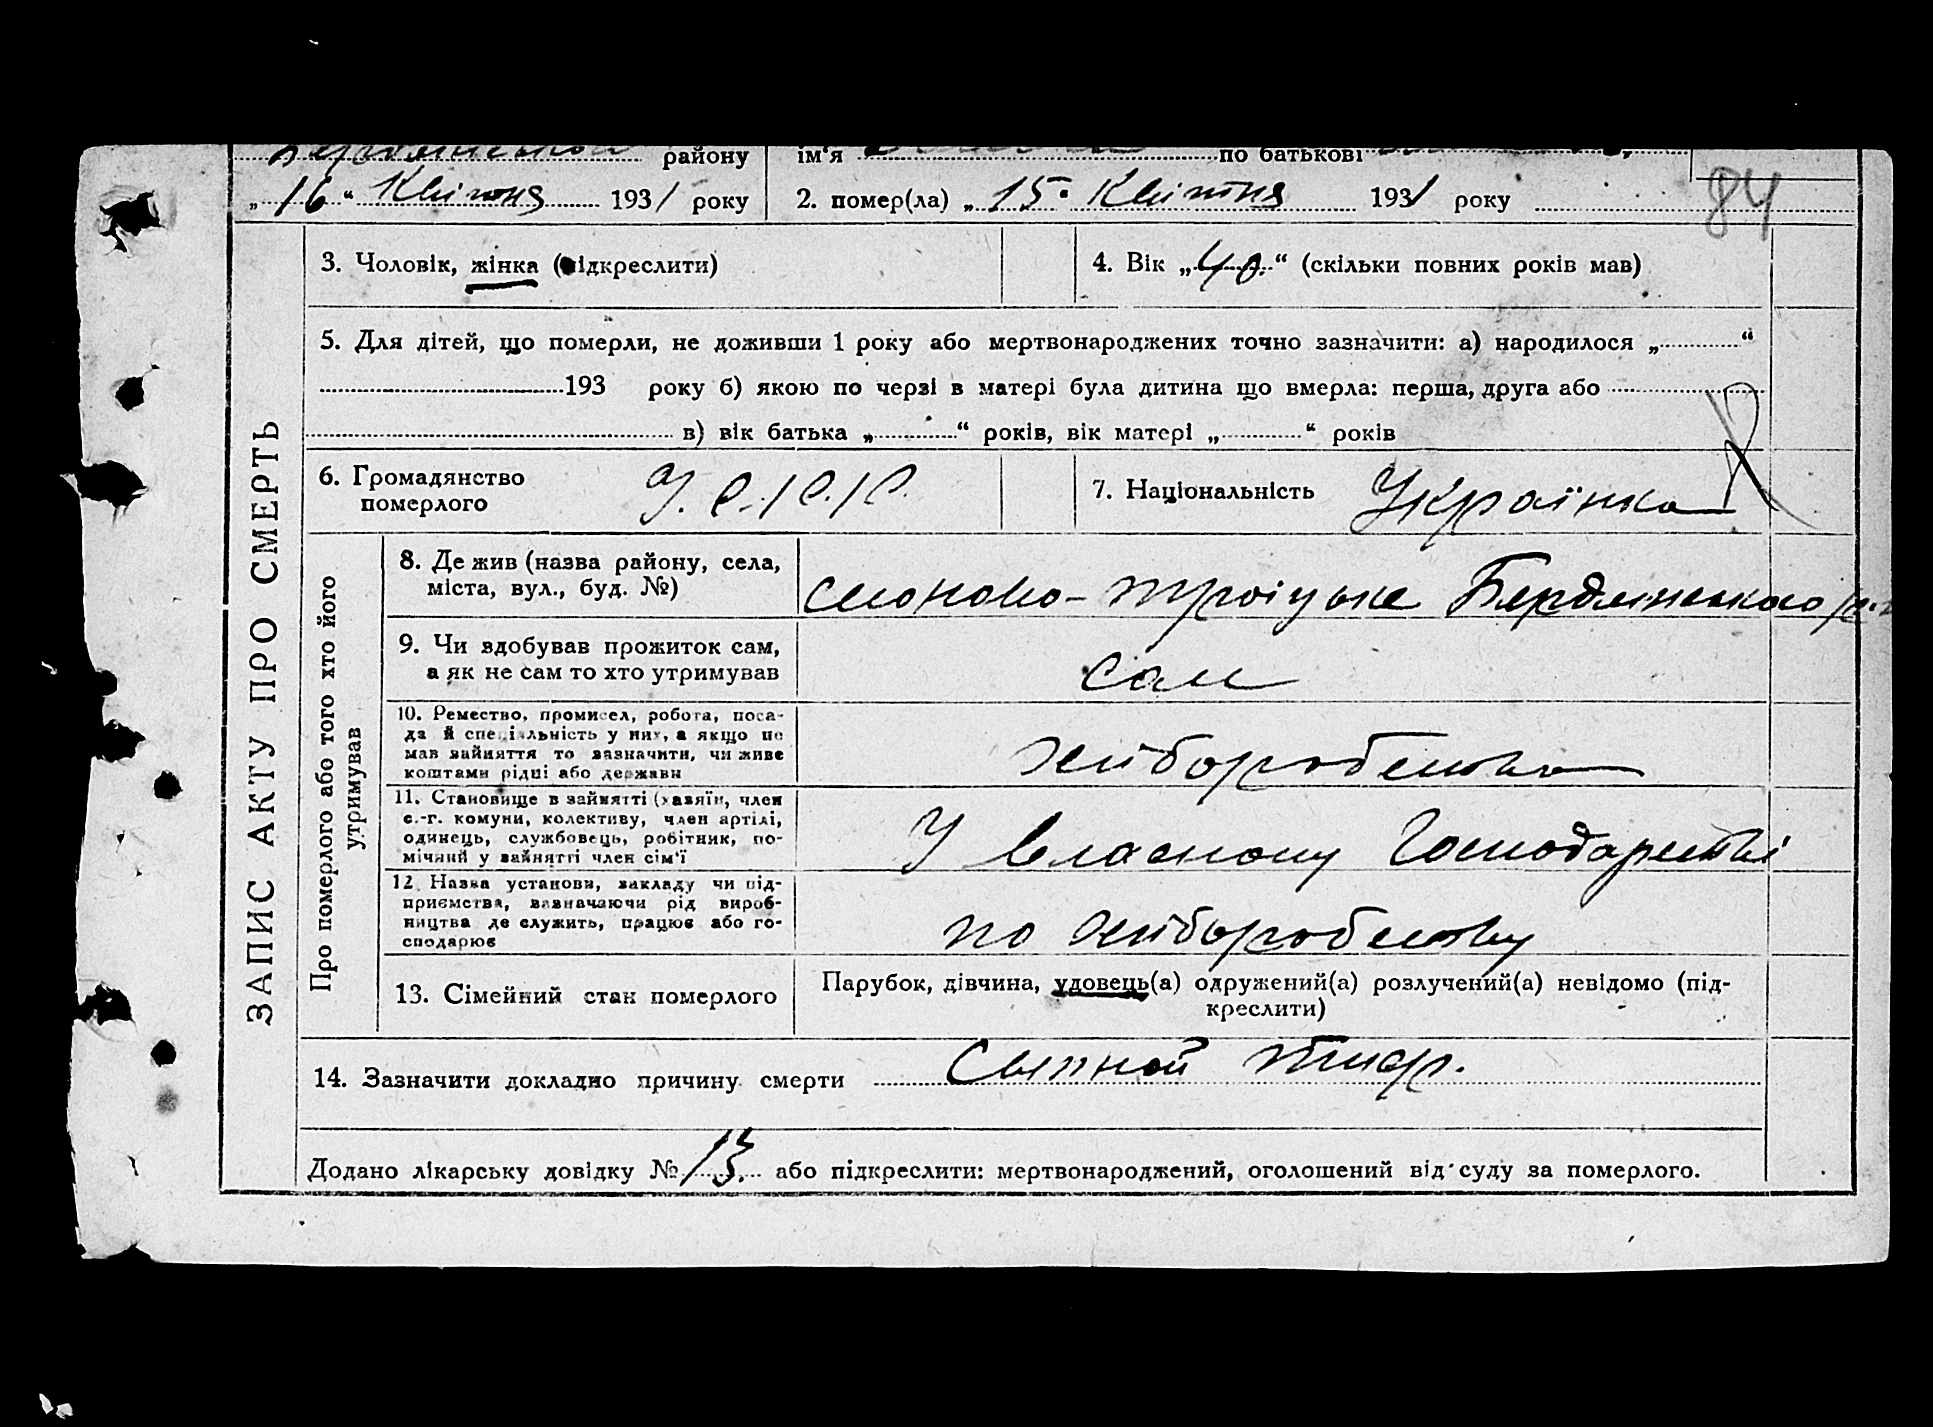 району ім'я по батькові
„16“ Квітня 1931 року 2. помер(ла) „15“ Квітня 1931 року
84
3. Чоловік, жінка (підкреслити) 4. Вік „40“ (скільки повних років мав)
5. Для дітей, що померли, не доживши 1 року або мертвонароджених точно зазначити: а) народилося „ “
193 року б) якою по черзі в матері була дитина що вмерла: перша, друга або
в) вік батька „ “ років, вік матері „ “ років
6. Громадянство
померлого
У.С.Р.Р.
7. Національність Українка
ЗАПИС АКТУ ПРО СМЕРТЬ
Про померлого або того хто його
утримував
8. Де жив (назва району, села,
міста, вул., буд. №)
троіцьке Бердянського р.
9. Чи здобував прожиток сам,
а як не сам то хто утримував
сам
10. Ремество, промисел, робота, поса-
да й спеціальність у них, а якщо не
мав зайняття то зазначити, чи живе
коштами рідні або держави
хліборобство
11. Становище в зайнятті (хазяїн, член
с.-г. комуни, колективу, член артілі,
одинець, службовець, робітник, по-
мічний у зайнятті член сім'ї
У власному господарстві
12. Назва установи, закладу чи під-
приємства, зазначаючи рід вироб-
ництва де служить, працює або го-
сподарює
по хліборобству
13. Сімейний стан померлого
Парубок, дівчина, удовець(а) одружений(а) розлучений(а) невідомо (під-
креслити)
14. Зазначити докладно причину смерти Сыпной тиф.
Додано лікарську довідку № 13. або підкреслити: мертвонароджений, оголошений від суду за померлого.